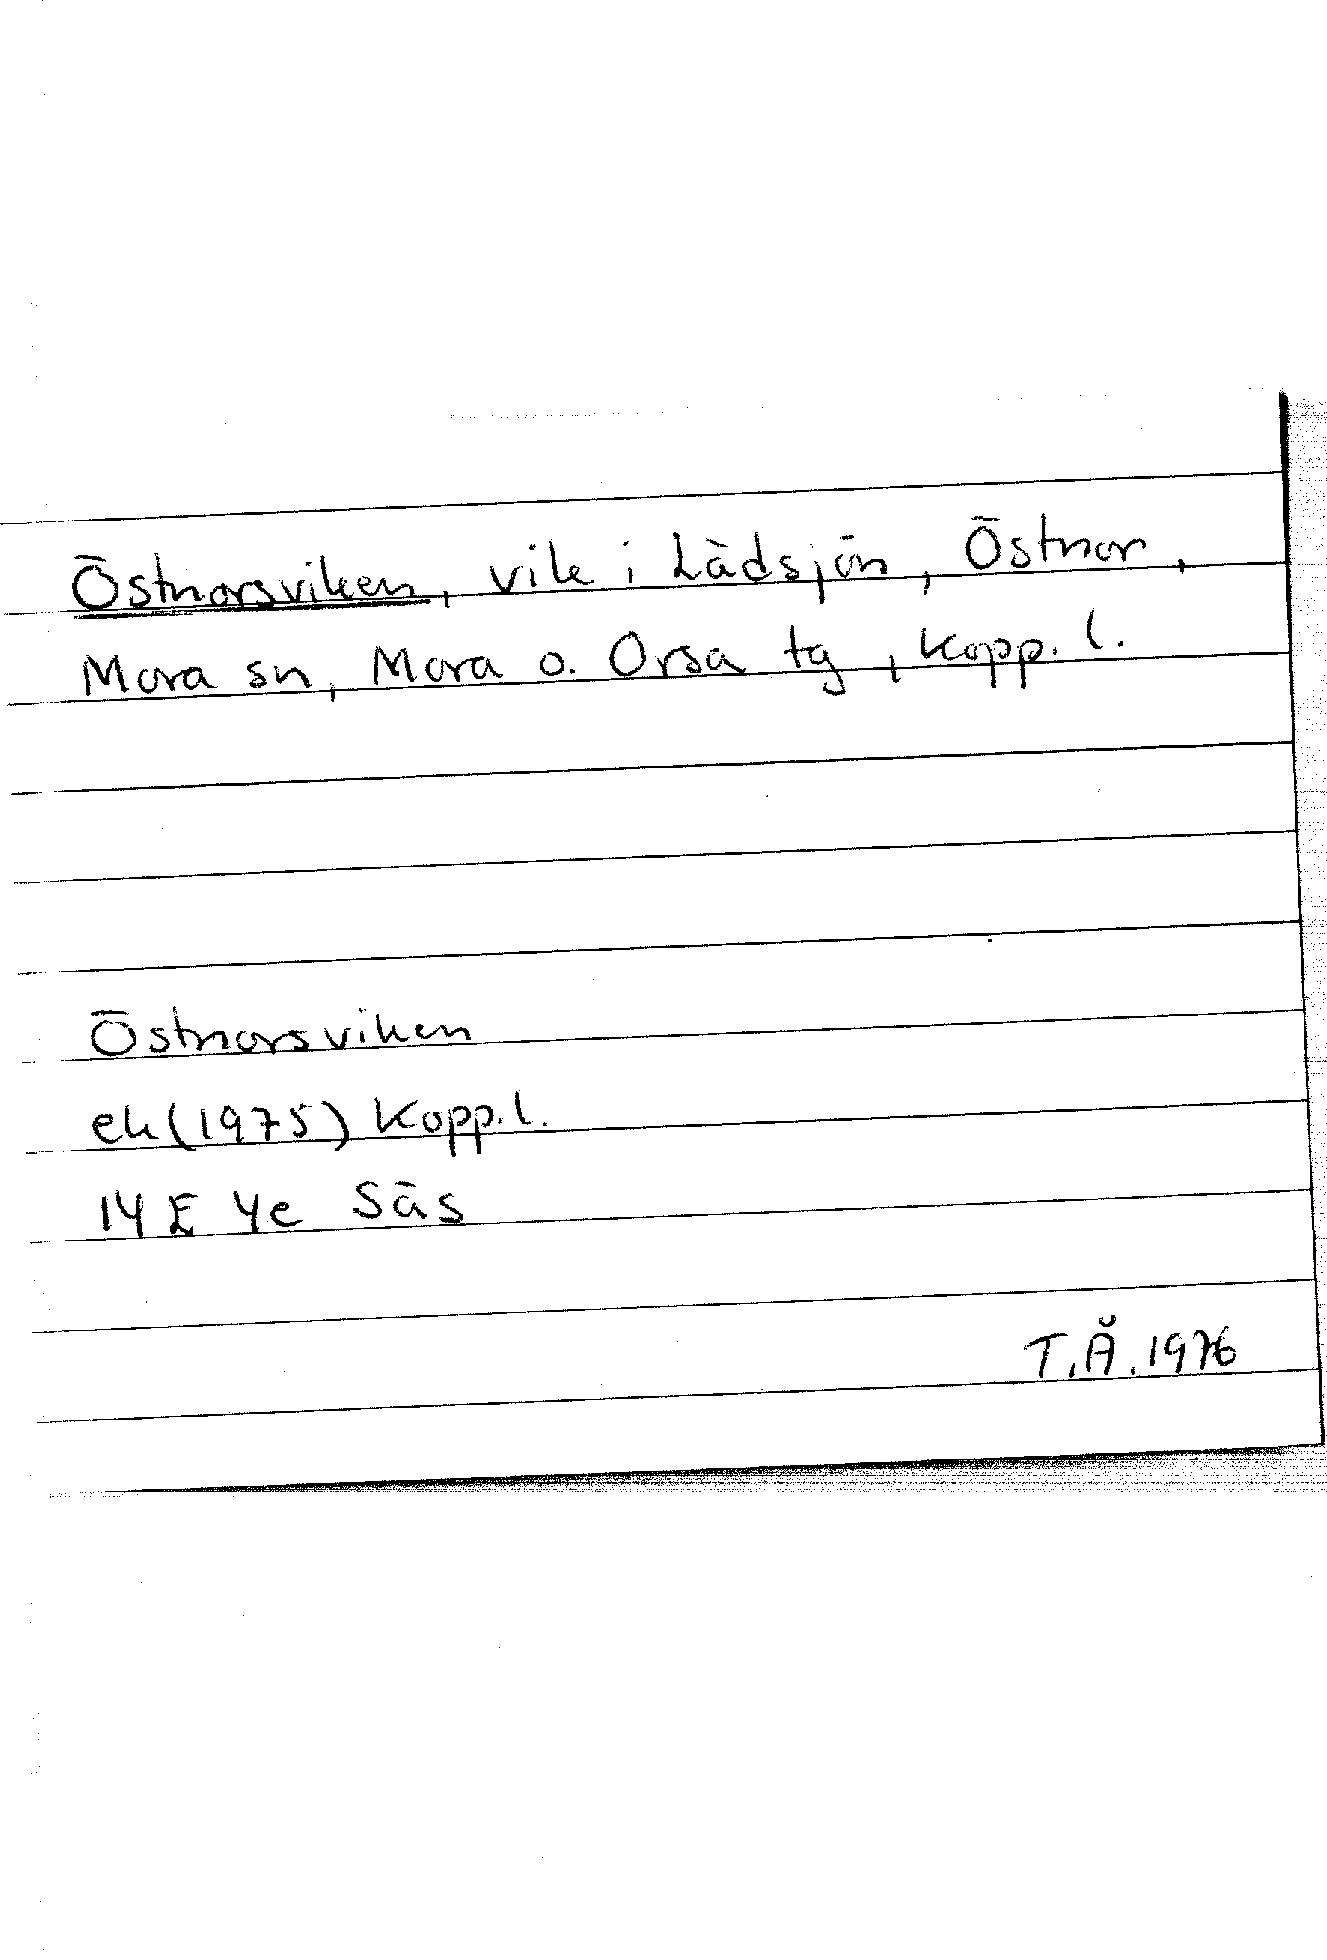 Östnorsviken, vik i Lådsjön, Östnor,
Mora sn, Mora o. Orsa tg, Kopp. l.
Östnorsviken
ek (1975) Kopp. l.
14 E 4e Säs
T.Å. 1976